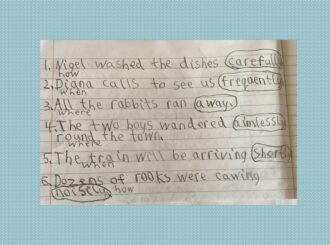 1. Nigel washed the dishes carefully
how
2. Diana calls to see us frequently
when
3. All the rabbits ran away.
where
4. The two boys wandered aimlessly
round the town.
where
5. The train will be arriving shortly
when
6. Dozens of rooks were cawing
noisely how